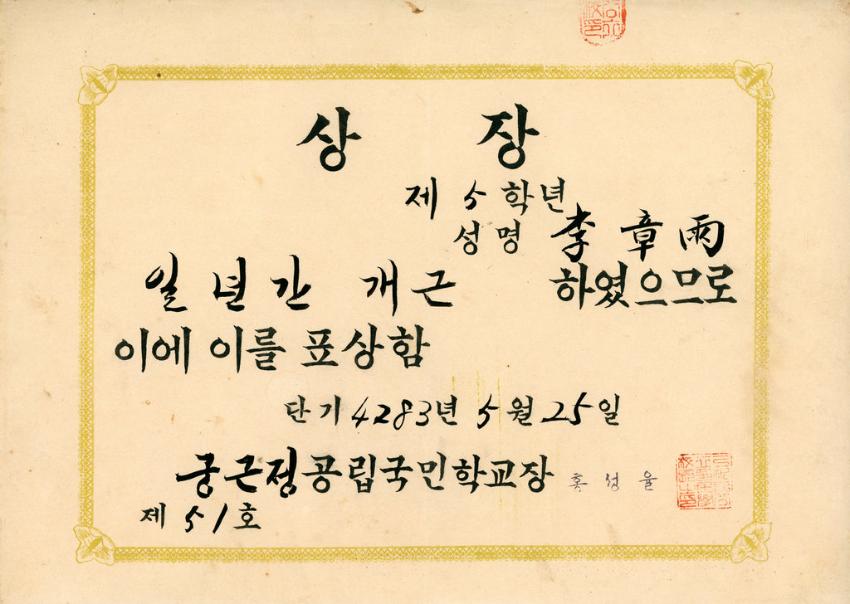 상 장
제 5 학년
성명 李章雨
일년간 개근 하였으므로
이에 이를 표상함
단기 4283년 5월 25일
궁근정공립국민학교장 홍성율
제 51호